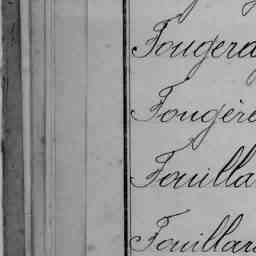 Fougera
Fougère
Fouilla
Fouillar